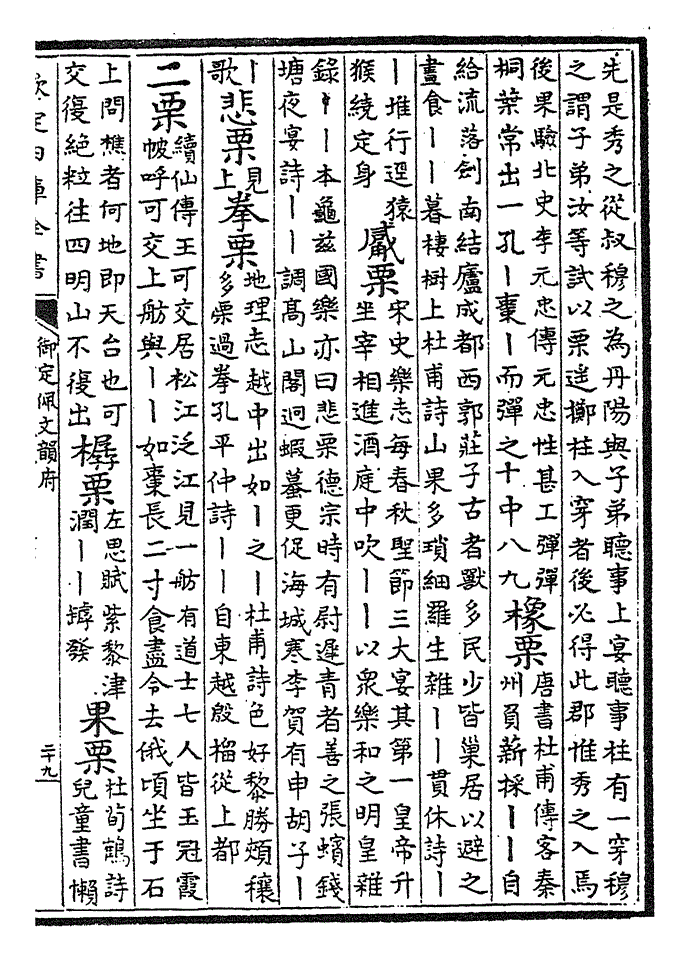 先是秀之從叔穆之為丹陽與子弟聽事上宴聽事柱有一穿穆
之謂子弟汝等試以栗遥擲柱入穿者後必得此郡惟秀之入焉
後果驗北史李元忠傳元忠性甚工彈彈
桐葉常出一孔丨棗丨而彈之十中八九
橡栗
唐書杜甫傳客秦
州負薪採丨丨自
給流落劍南結廬成都西郭莊子古者獸多民少皆巢居以避之
晝食丨丨暮棲樹上杜甫詩山果多瑣細羅生雜丨丨貫休詩丨
丨堆行逕猿
猴繞定身
觱栗
宋史樂志每春秋聖節三大宴其第一皇帝升
坐宰相進酒庭中吹丨丨以衆樂和之明皇雜
錄丨丨本龜兹國樂亦曰悲栗德宗時有尉遲青者善之張蠙錢
塘夜宴詩丨丨調髙山閣迥蝦蟇更促海城寒李賀有申胡子丨
丨
歌
悲栗
見
上
拳栗
地理志越中出如丨之丨杜甫詩色好黎勝頰穰
多栗過拳孔平仲詩丨丨自東越殷榴從上都
二栗
續仙傳王可交居松江泛江見一舫有道士七人皆玉冠霞
帔呼可交上舫與丨丨如棗長二寸食盡令去俄頃坐于石
上問樵者何地即天台也可
交復絶粒往四明山不復出
樼栗
左思賦紫黎津
潤丨丨罅發
果栗
杜荀鶴詩
兒童書懶
欽定四庫全書
御定佩文韻府
二十九